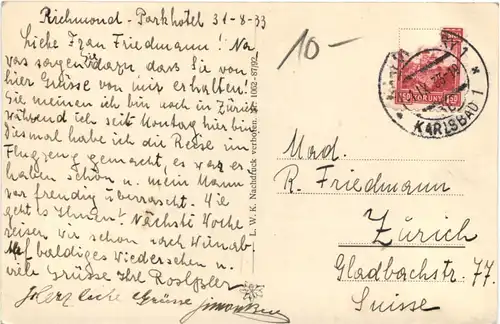 Richmond - Parkhotel 31-8-33
Liebe Frau Friedmann! Na
was sagen Sie dazu dass Sie von
hier Grüsse von mir erhalten!
Sie meinen ich bin noch in Zürich
während ich seit Montag hier bin
Diesmal habe ich die Reise im
Flugzeug gemacht, es war er-
haben schön u. mein Mann
war freudig überrascht. Wie
geht es Ihnen? Nächste Woche
reisen wir schon nach Wien ab
Auf baldiges Wiedersehen u.
viele Grüsse Ihre
Herzliche Grüsse
L. W. K. Nachdruck verboten. 1002-87/92
10-
KORUNY
1.50 1.50
KARLSBAD 1
Mad.
R. Friedmann
Zürich
Gladbachstr. 77.
Suisse